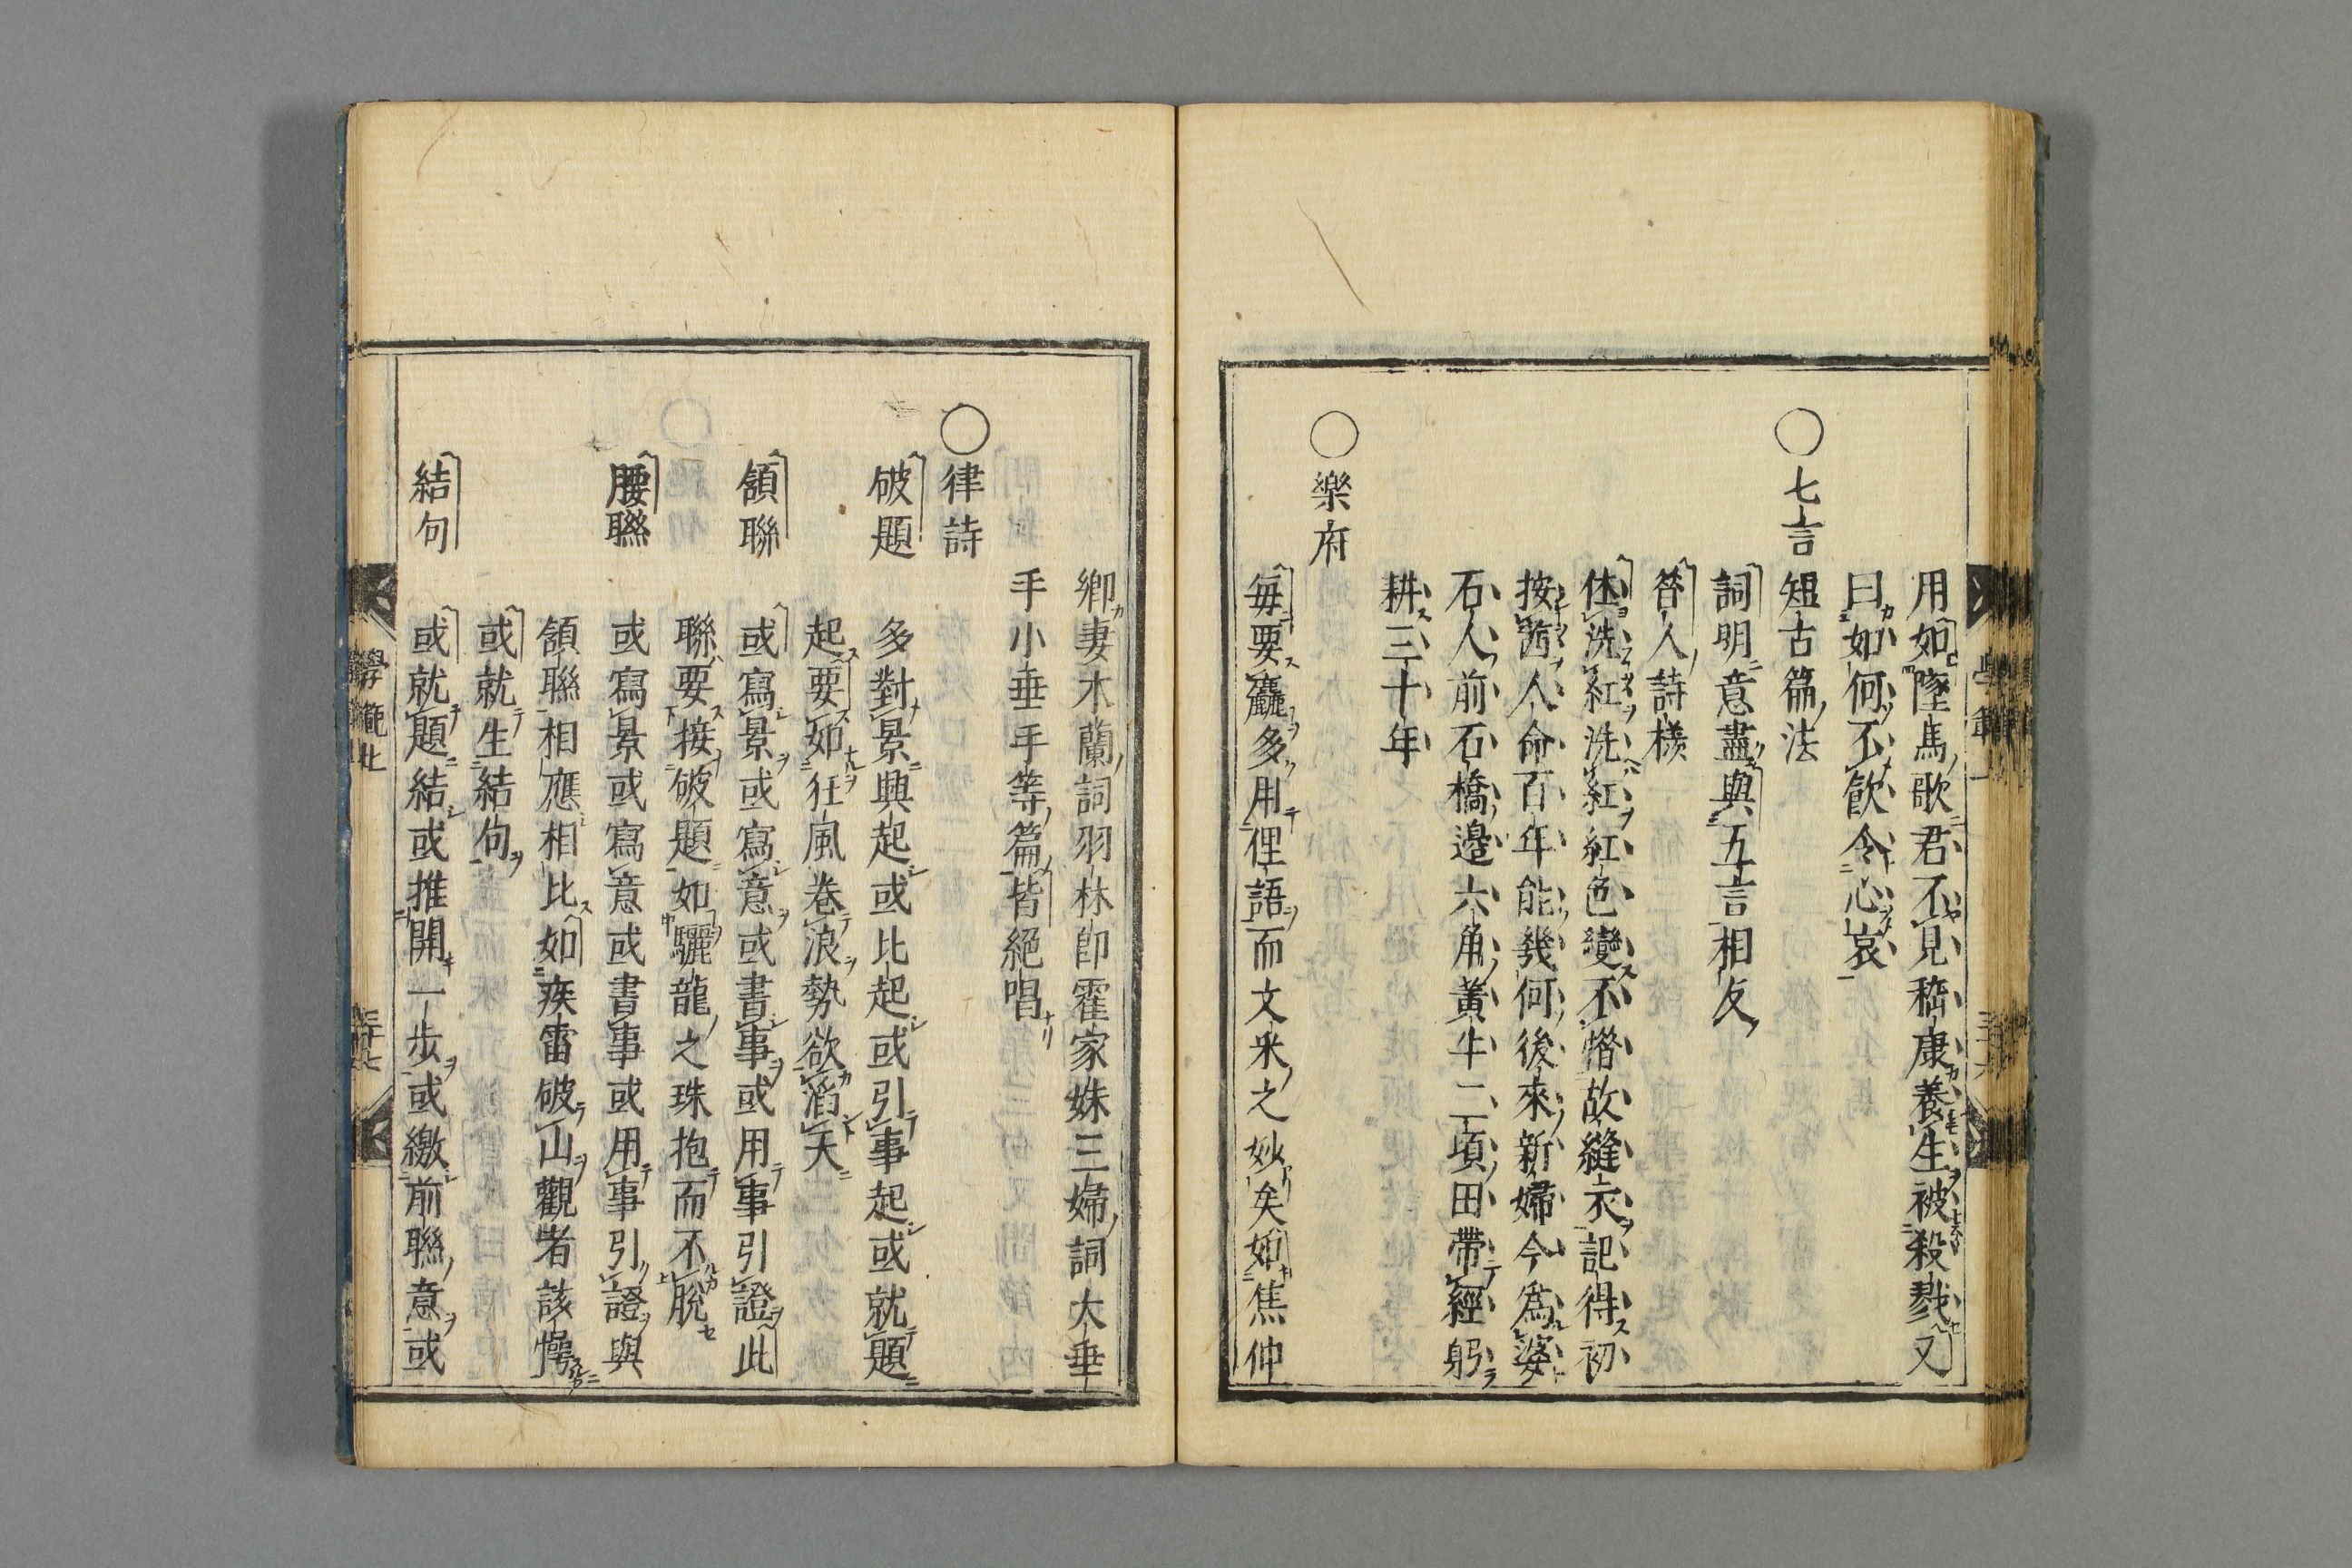 用如墮馬歌君不見嵇康養生被殺戮又
曰如何不飮令心哀
○七言短古篇法
詞明意盡與五言相反
答人詩樣
休洗紅洗紅紅色變不惜故縫衣記得初
按茜人命百年能幾何後來新婦今爲婆
石人前石橋邊六角黃牛二頃田帶經躬
耕三十年
○樂府
每要麤多用俚語而文釆之妙矣如焦仲
卿妻木蘭詞羽林郎霍家姝三婦詞大垂
手小垂手等篇皆絕唱
○律詩
破題 多對景興起或比起或引事起或就題
起要如狂風卷浪勢欲滔天
頷聯 或寫景或寫意或書事或用事引證此
聯要接破題如驪龍之珠抱而不脫
腰聯 或寫景或寫意或書事或用事引證與
頷聯相應相比如疾雷破山觀者該愕
或就生結句
結句 或就題結或推開一步或繳前聯意或
學範上 三十七